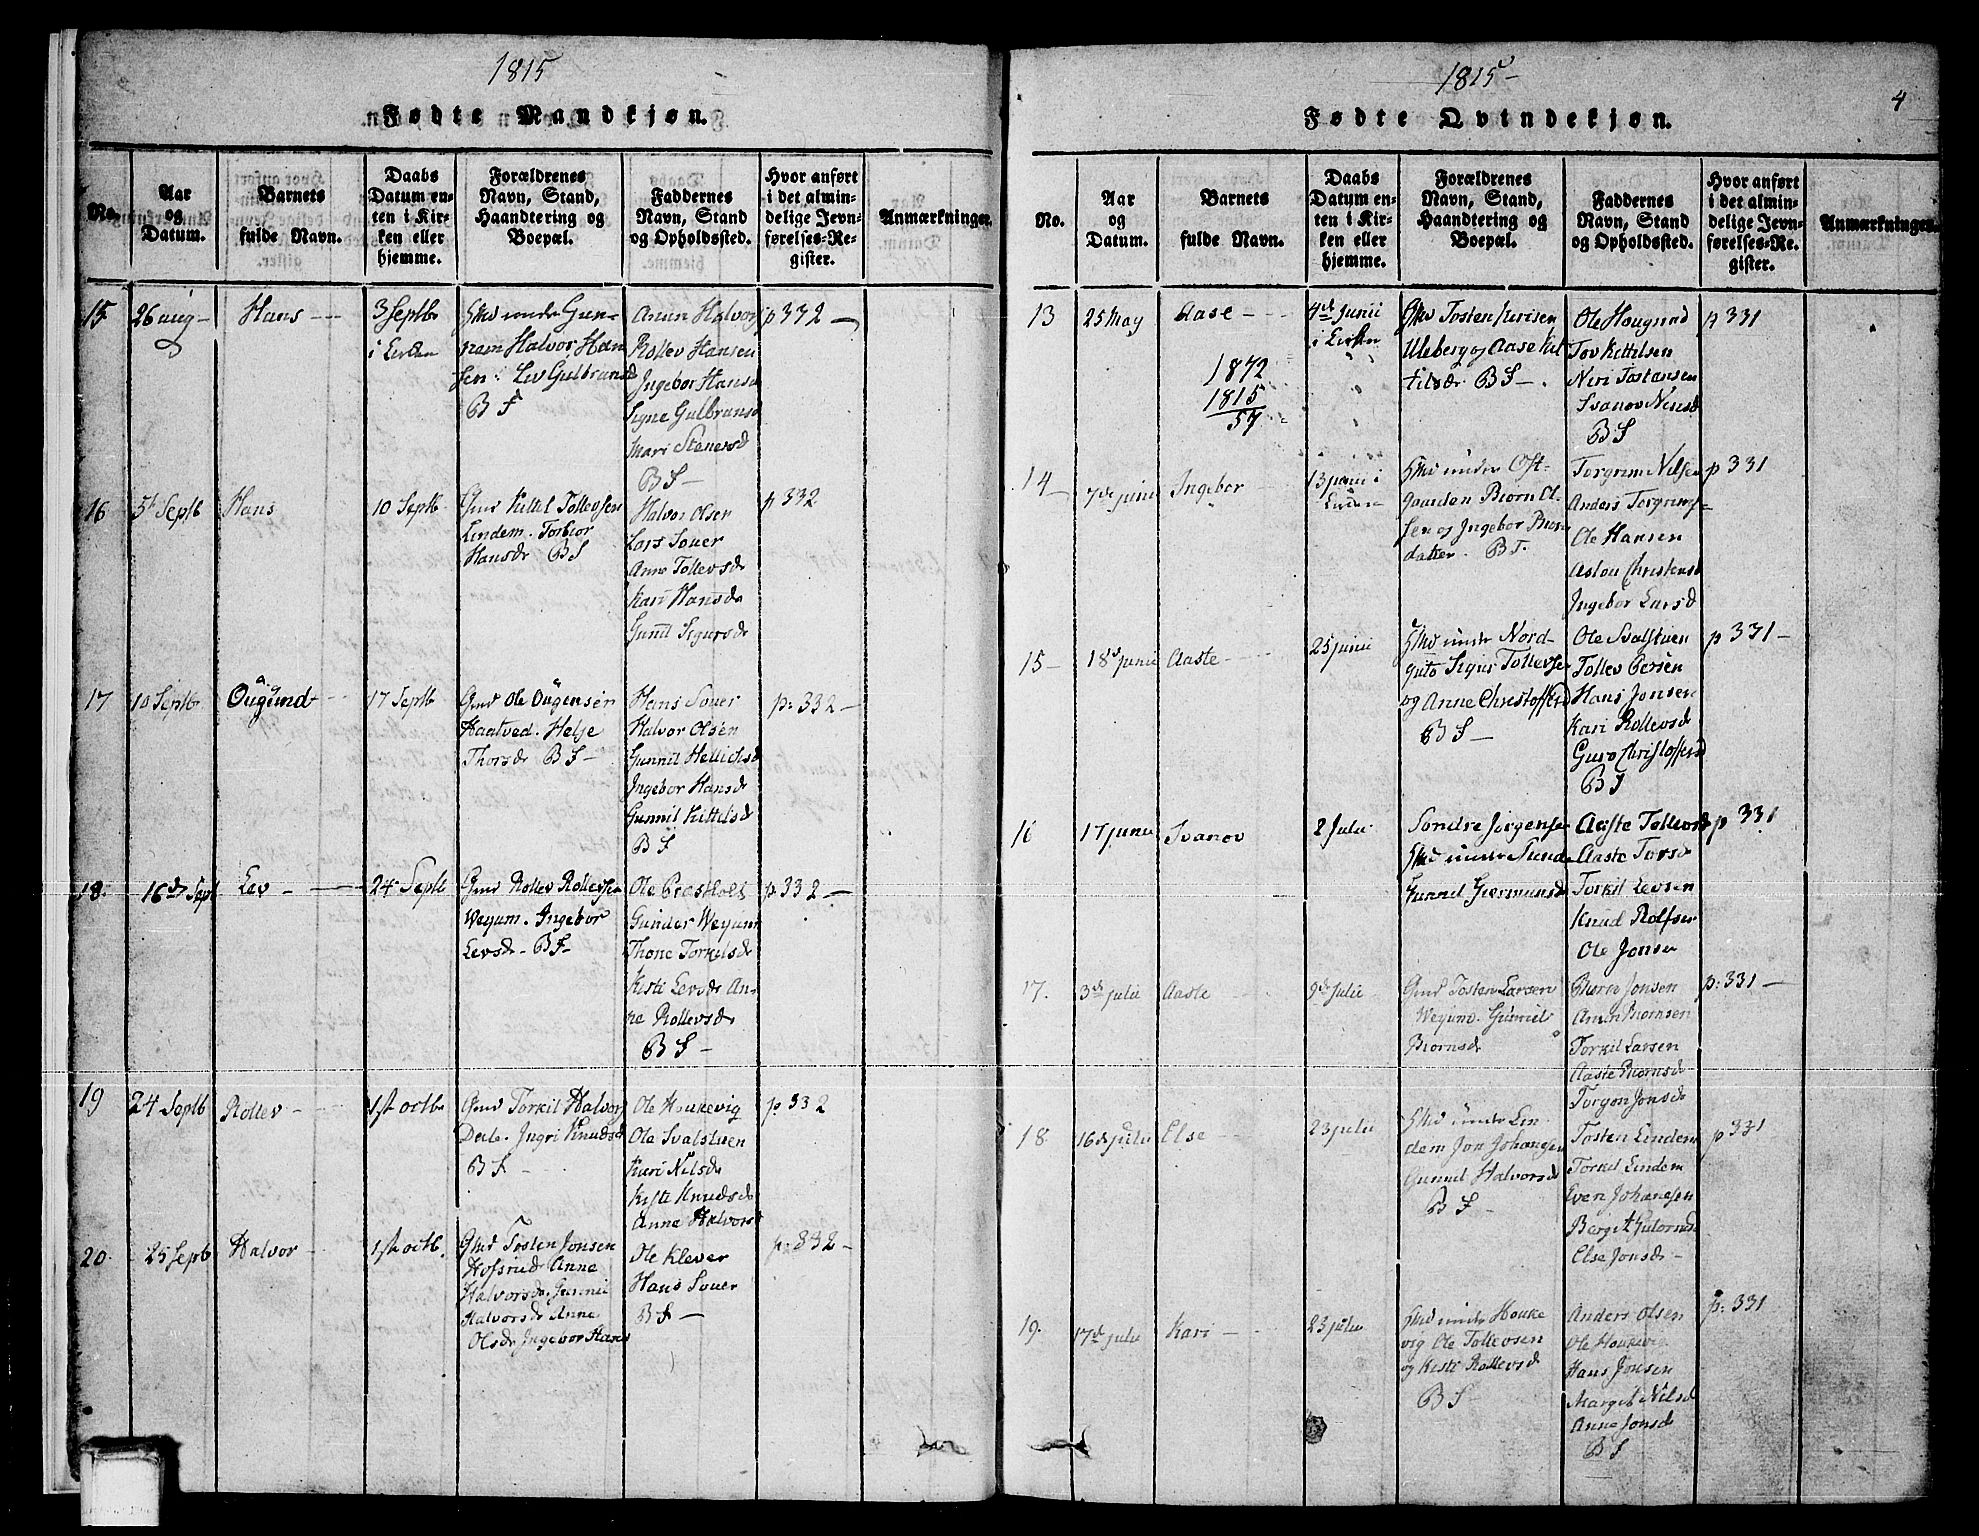 1815
Fødte Mandkjøn.
No.
Aar
og
Datum.
Barnets
fulde Navn.
Daabs
Datum en-
ten i Kir-
ken eller
hjemme.
Forældrenes
Navn, Stand,
Haandtering og
Boepæl.
Faddernes
Navn, Stand
og Opholdssted.
Hvor anført
i det almin-
delige Jevn-
førelses-Re-
gister.
Anmærkninger.
15
26 aug
Hans
3 Septb
i Kirken
Halvor Han
sen. Lev Gulbrand
B F
Halvor
Rollev Hansen
Ingebor Hansd
Signe Gulbransd
Mari Stenersd
B S
p 332
16
5t Septb
Hans
10 Septb
Gmd Kittil Tollevsen
Lindem. Torbior
Hansdr B S
Halvor Olsen
Lars Souer
Anne Tollevsdr
Kari Hansdr
Gunil Sigursdr
p 332
17
10 Septb
Ougund
17 Septb
Gmd Ole Ougensen
Haatved. Helje
Thorsdr B S
Hans Souer
Halvor Olsen
Gunnil Hellichsd
Ingebor Hansdr
Gunnil Kittilsd
B S
p: 332
18.
16de Sept
Lev
24 Septb
Gmd Rollev Rollevsen
Weyum. Ingebor
Levsdr B F
Ole Præstholt
Gunder Weyum
Thone Torkilsdr
Kisti Levsdr An-
ne Rollevsdr
B S
p 332
19
24 Septb
Rollev
1st octb
Gmd Torkil Halvors
Dale. Ingri Knudsd
B S
Ole Houkevig
Ole Svalstuen
Kari Nilsdr
Kisti Knudsdr
Anne Halvors
p 332
20
25 Septb
Halvor
1st octb.
Gmd Tosten Jonsen
Hofsrud Anne
Halvorsdr Gunnil
Halvorsdr Anne
Olsdr Ingebor Hans
Ole Klever
Hans Souer
B S
p: 332
1815
4
Fødte Qvindekjøn.
No.
Aar
og
Datum.
Barnets
fulde Navn.
Daabs
Datum en-
ten i Kir-
ken eller
hjemme.
Forældrenes
Navn, Stand,
Haandtering og
Boepæl.
Faddernes
Navn, Stand
og Opholdssted.
Hvor anført
i det almin-
delige Jevn-
førelses-Re-
gister.
Anmærkninger.
13
25 May
Aase
1872
1815
57
4de Junii
i Kirken
Tosten
Uleberg og Aase Kit
tilsdr B S
Ole Hougrud
Tov Kittilsen
Neri Tostansen
Svanov Nirisd
B S
p 331
14
7de junii
Ingebor
13 junii i
Kirken
Huusmd under Øst-
gaarden Biørn Ol-
sen og Ingebor
datter. B F.
Torgrim Nilsen
Anders Torgrims
Ole Hansen
Aslou Christensd
Ingebor Larsd
p 331
15
18de junii
Aaste
25 junii
under Nord-
guto Sigur Tollevsen
og Anne Christoffersd
B S
Ole Svalstuen
Tollev Persen
Hans Jonsen
Kari Rollevsdr
Guro Christoffersd
B S
p 331
16
17 junii
Svanov
2 Julii
Sondre Jørgensen
under
Gunnil Giermunsd
Aaste Tollevsd
Aaste Torsd
Torkil Levsen
Knud Rolfsen
Ole Jonsen
p 331
17.
3de julii
Aaste
9de Julii
Gmd Tosten Larsen
Weyum. Gunnil
Biørnsdr
Jonsen
Biørnsen
Torkil Larsen
Aaste Biørnsd
Torgon Jonsdr
p: 331
18
16de julii
Else
23 julii
under Lin
dem Jon Johansen
Gunnil Halvorsd
B S
Tosten Lindem
Torkil Lindem
Even Johansen
Bergit
Else Jonsdr
p 331
19.
17de julii
Kari
23 julii
under Houke
vig Ole Tollevsen
og Kisti Rollevsd
B S
Anders Olsen
Ole Houkevig
Hans Jonsen
Margit Nilsd
Anne Jonsdr
B S
p: 331